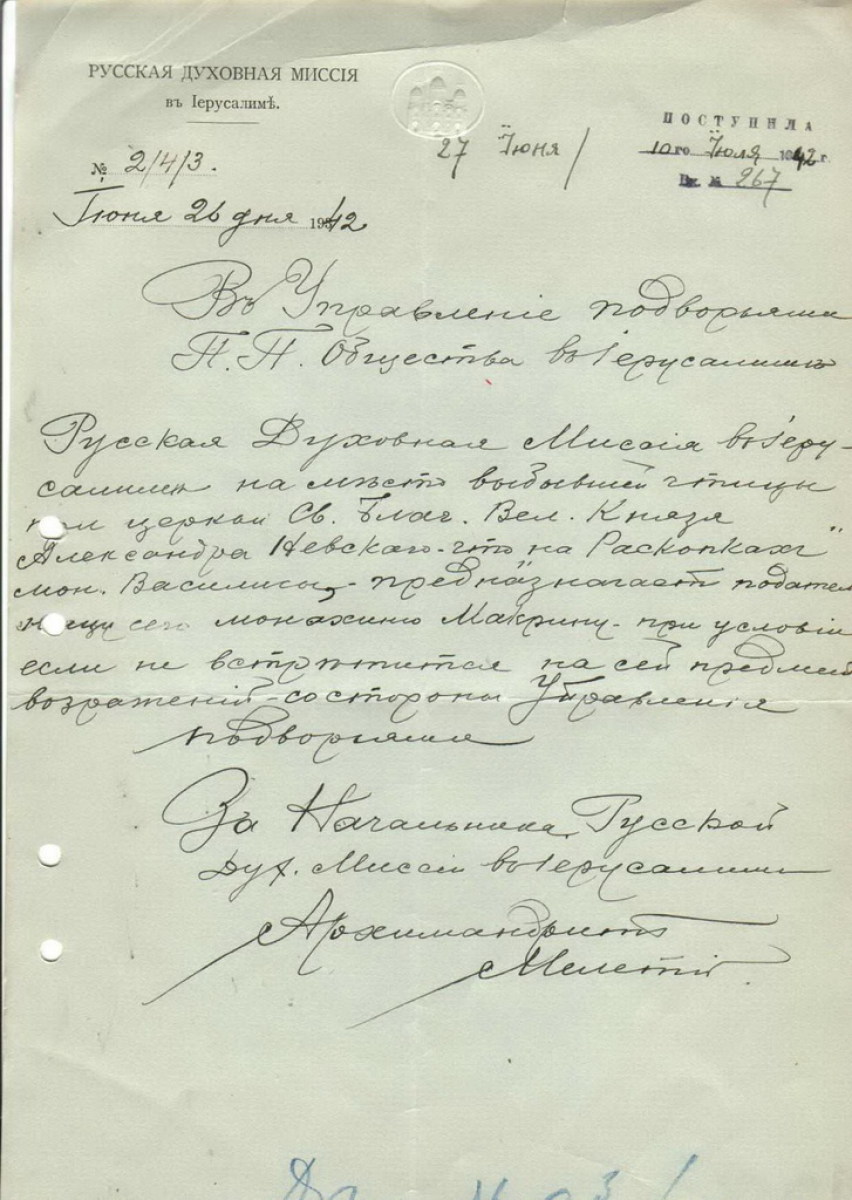 РУССКАЯ ДУХОВНАЯ МИССІЯ
въ Іерусалимѣ.
№ 2/4/3.
Іюня 26 дня 1942
27 Іюня /
ПОСТУПИЛА
10го Іюля 1942 г.
Вх. № 267
Въ Управленіе подворьями
П. П. Общества въ Іерусалимѣ
Русская Духовная Миссія въ Іеру-
салимѣ на мѣсто выбывшей чтицы
при церкви Св. Благ. Вел. Князя
Александра Невскаго - что на Раскопкахъ"
мон. Василисы, - предназначаетъ подател
ницу сего монахиню Макрину - при условіи
если не встрѣтится на сей предмет
возраженій - со стороны Управленія
подворьями
За Начальника Русской
Дух. Миссіи въ Іерусалимѣ
Архимандритъ
Мелетій